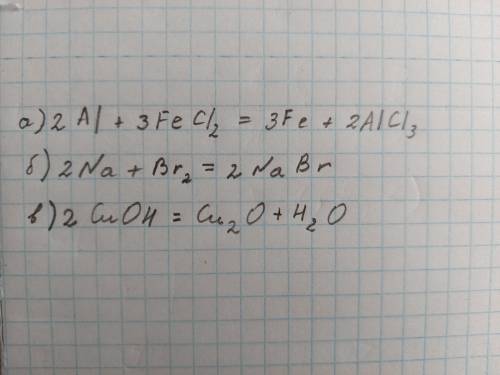 а) 2 Al + 3 FeCl₂ = 3Fe + 2AlCl₃
б) 2 Na + Br₂ = 2 NaBr
в) 2 CuOH = Cu₂O + H₂O